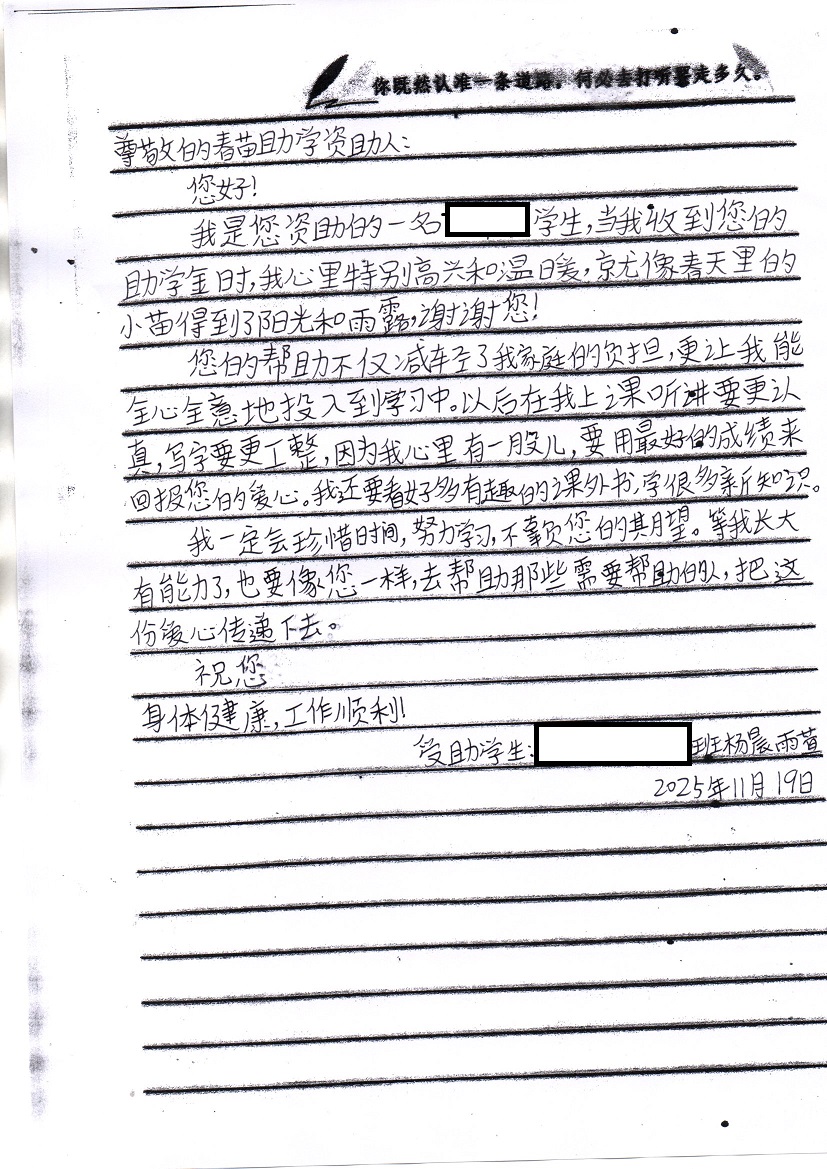 你既然认准一条道路，何必去打听要走多久。
尊敬的春苗助学资助人：
您好！
我是您资助的一名 学生，当我收到您的
助学金时，我心里特别高兴和温暖，京尤像春天里的
小苗得到了阳光和雨露，谢谢您！
您的帮助不仅减轻了我家庭的负担，更让我能
全心全意地投入到学习中。以后在我上课听讲要更认
真，写字要更工整，因为我心里有一股儿，要用最好的成绩来
回报您的爱心。我还要看好多有趣的课外书，学很多新知识。
我一定会珍惜时间，努力学习，不辜负您的期望。等我长大
有能力了，也要像您一样，去帮助那些需要帮助的人，把这
份爱心传递下去。
祝您
身体健康，工作顺利！
受助学生： 班杨晨雨萱
2025年11月19日